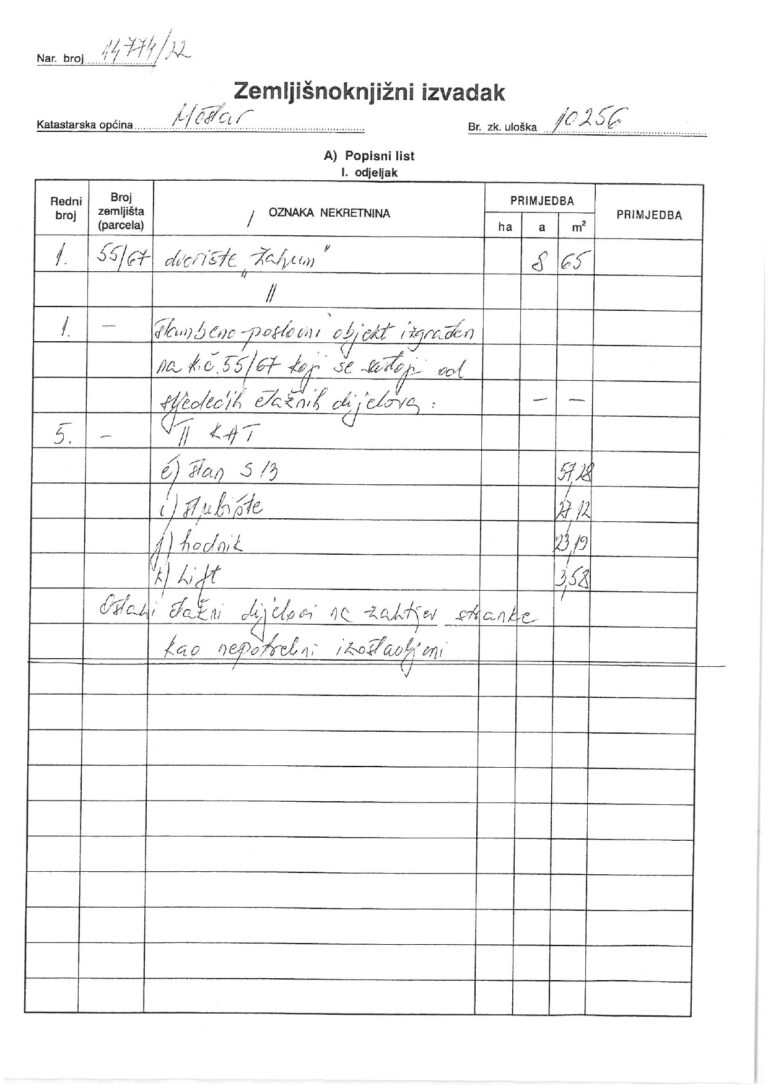 Nar. broj 14774/22
Zemljišnoknjižni izvadak
Katastarska općina Mostar Br. zk. uloška 10256
A) Popisni list
I. odjeljak
Redni broj Broj zemljišta (parcela) OZNAKA NEKRETNINA PRIMJEDBA PRIMJEDBA
ha a m²
1. 55/67 dvorište „Zahum" 8 65
II
1. – Stambeno-poslovni objekt izgrađen
na k.č. 55/67 koji se sastoji od
sljedećih etažnih dijelova: – –
5. – II KAT
é) stan S 13 57,28
i) stubište 27,12
j) hodnik 23,19
k) Lift 3,58
Ostali etažni dijelovi na zahtjev stranke
kao nepotrebni izostavljeni